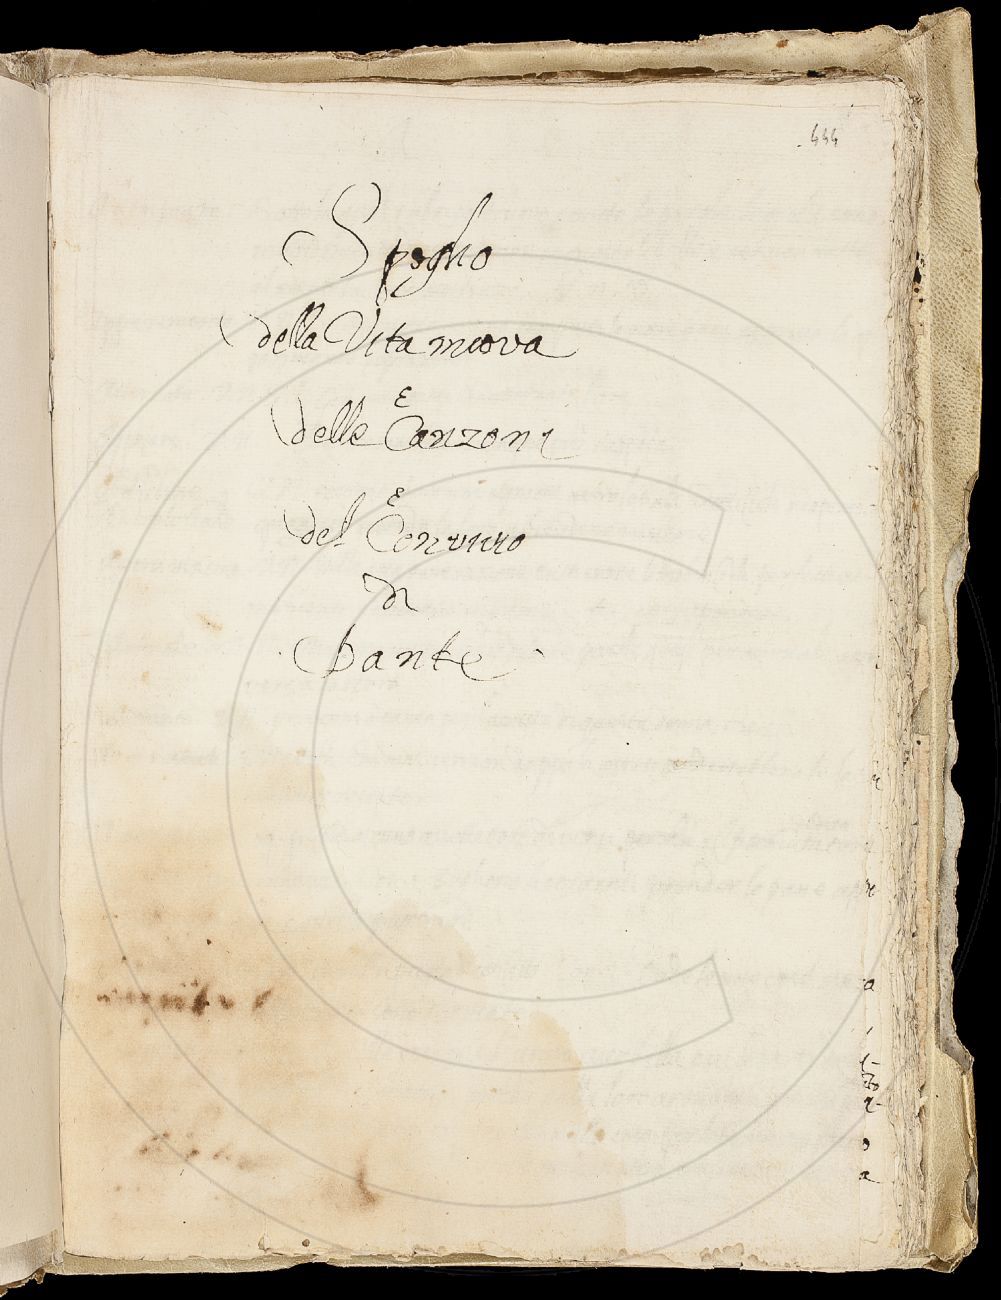 444
Spoglio
della Vita nuova
E
delle Canzoni
E
del Convivio
di
Dante